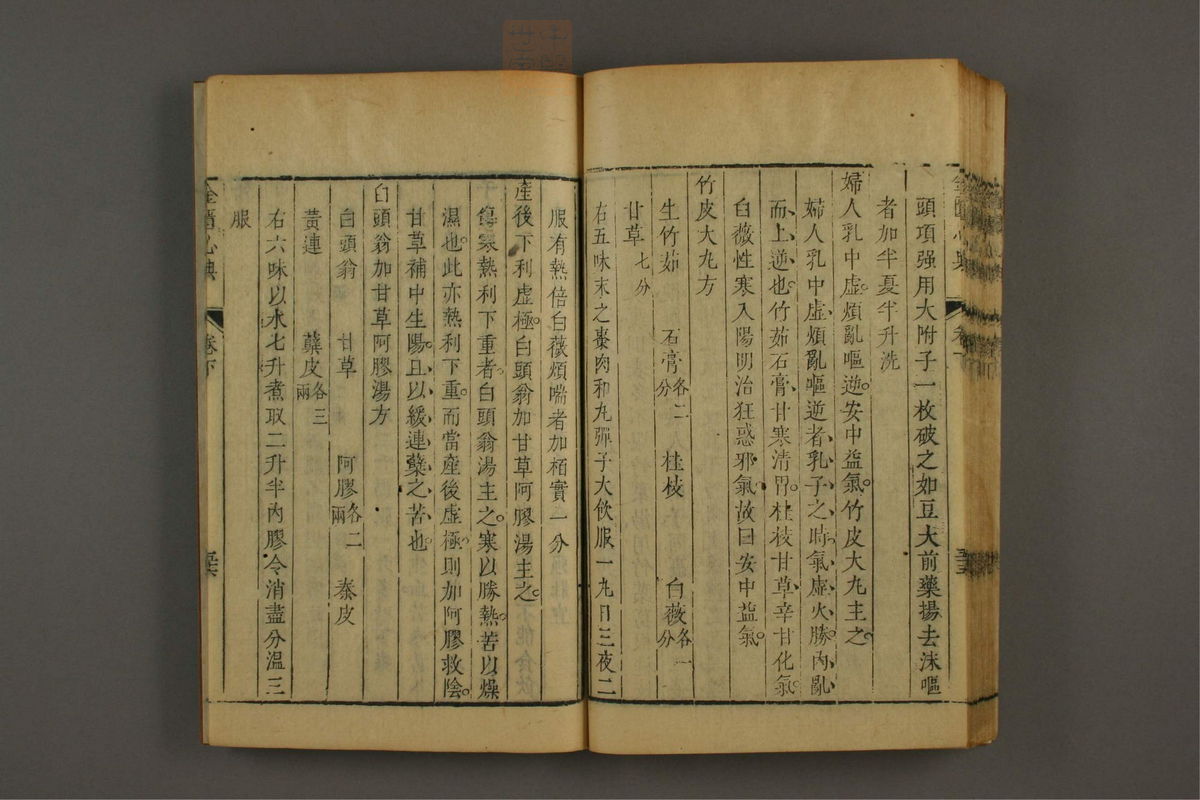 頭項强用大附子一枚破之如豆大前藥揚去沫嘔
者加半夏半升洗
婦人乳中虛煩亂嘔逆安中益氣竹皮大丸主之
婦人乳中虛煩亂嘔逆者乳子之時氣虛火勝內亂
而上逆也竹茹石膏甘寒清胃桂枝甘草辛甘化氣
白薇性寒入陽明治狂惑邪氣故曰安中益氣
竹皮大丸方
生竹茹 石膏各二分 桂枝 白薇各一分
甘草七分
右五味末之棗肉和丸彈子大飲服一丸日三夜二
服有熱倍白薇煩喘者加栢實一分
產後下利虛極白頭翁加甘草阿膠湯主之
傷寒熱利下重者白頭翁湯主之寒以勝熱苦以燥
濕也此亦熱利下重而當產後虛極則加阿膠救陰
甘草補中生陽且以緩連蘗之苦也
白頭翁加甘草阿膠湯方
白頭翁 甘草 阿膠各二兩 秦皮
黃連 蘗皮各三兩
右六味以水七升煮取二升半內膠令消盡分溫三
服
金匱心典 卷下